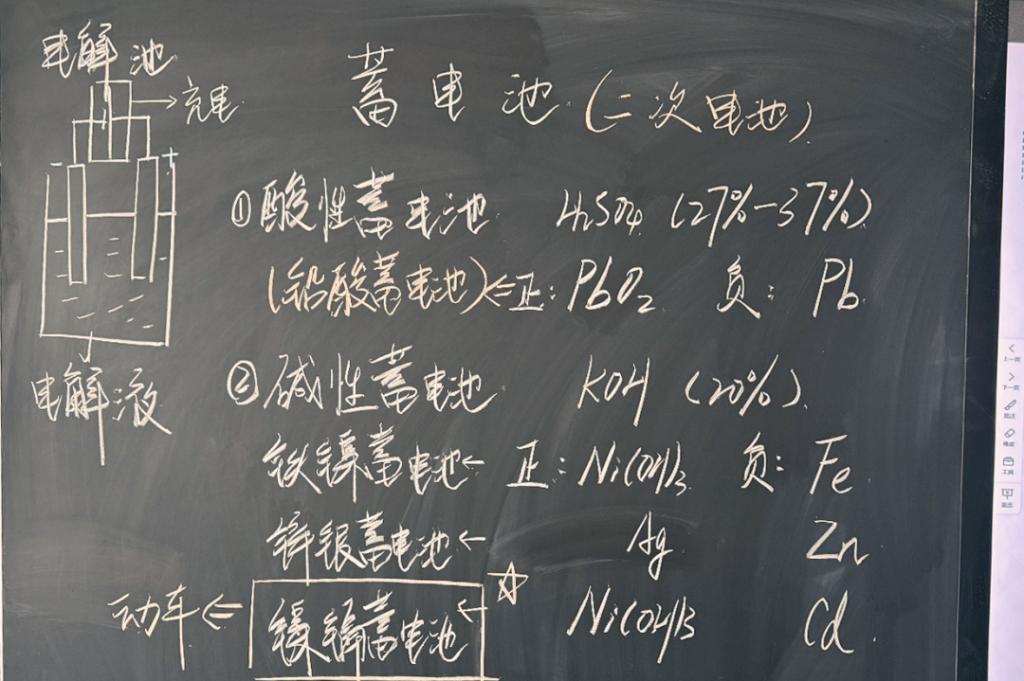 蓄电池(二次电池)
电解池
充电
- +
电解液
①酸性蓄电池 H₂SO₄ (27%-37%)
(铅酸蓄电池)⇐正: PbO₂ 负: Pb
②碱性蓄电池 KOH (20%).
铁镍蓄电池← 正: Ni(OH)₃ 负: Fe
锌银蓄电池← Ag Zn
动车⇐ 镍镉蓄电池← ☆ Ni(OH)₃ Cd.
上一页
下一页